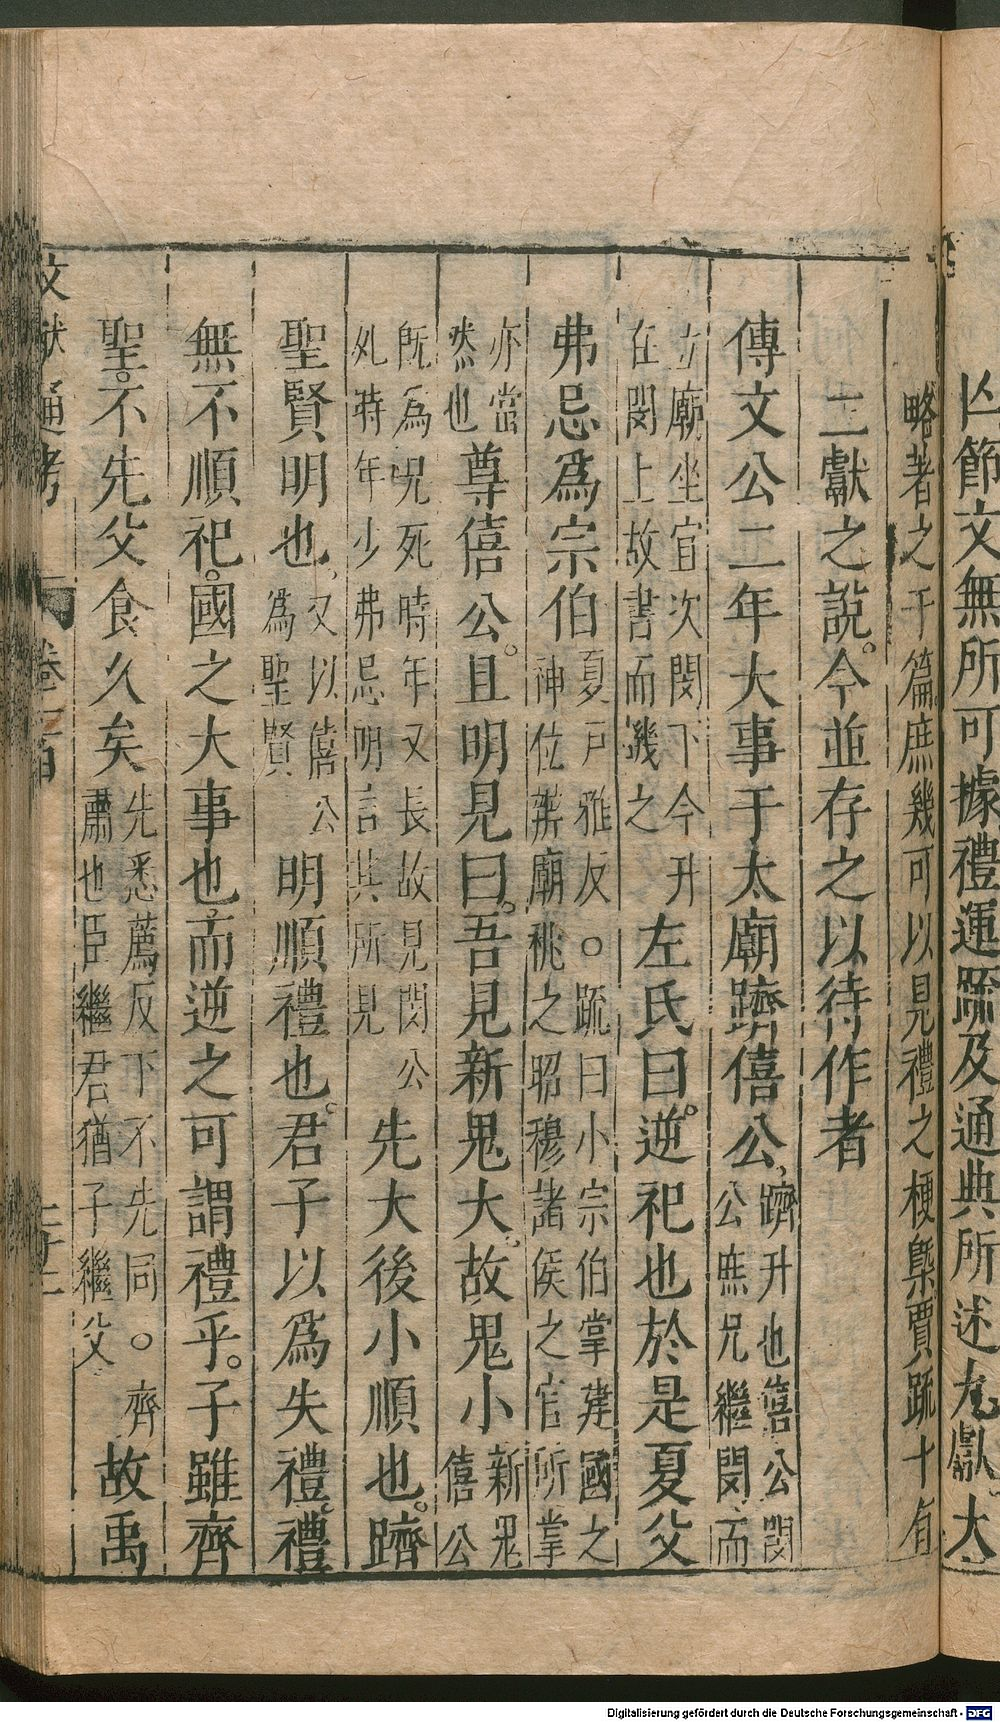 節文無所可據禮運䟽及通典所述九獻大
略著之于篇庶幾可以見禮之梗槩賈䟽十有
二獻之說。今並存之以待作者
傳文公二年大事于太廟躋僖公,躋升也僖公閔
公庶兄繼閔而
立廟坐宜次閔下今升
在閔上故書而譏之左氏曰。逆祀也於是夏父
弗忌爲宗伯夏戶雅反○䟽曰小宗伯掌建國之
神位辨廟祧之昭穆諸侯之官所掌
亦當
然也尊僖公。且明見曰。吾見新鬼大。故鬼小新鬼
僖公
旣爲兄死時年又長故見閔公
死時年少弗忌明言其所見先大後小順也。躋
聖賢明也,又以僖公
爲聖賢明順禮也。君子以爲失禮。禮
無不順祀。國之大事也而逆之可謂禮乎。子雖齊
聖。不先父食久矣先悉薦反下不先同○齊
肅也臣繼君猶子繼父故禹
文獻通考 卷一百
Digitalisierung gefördert durch die Deutsche Forschungsgemeinschaft - DFG